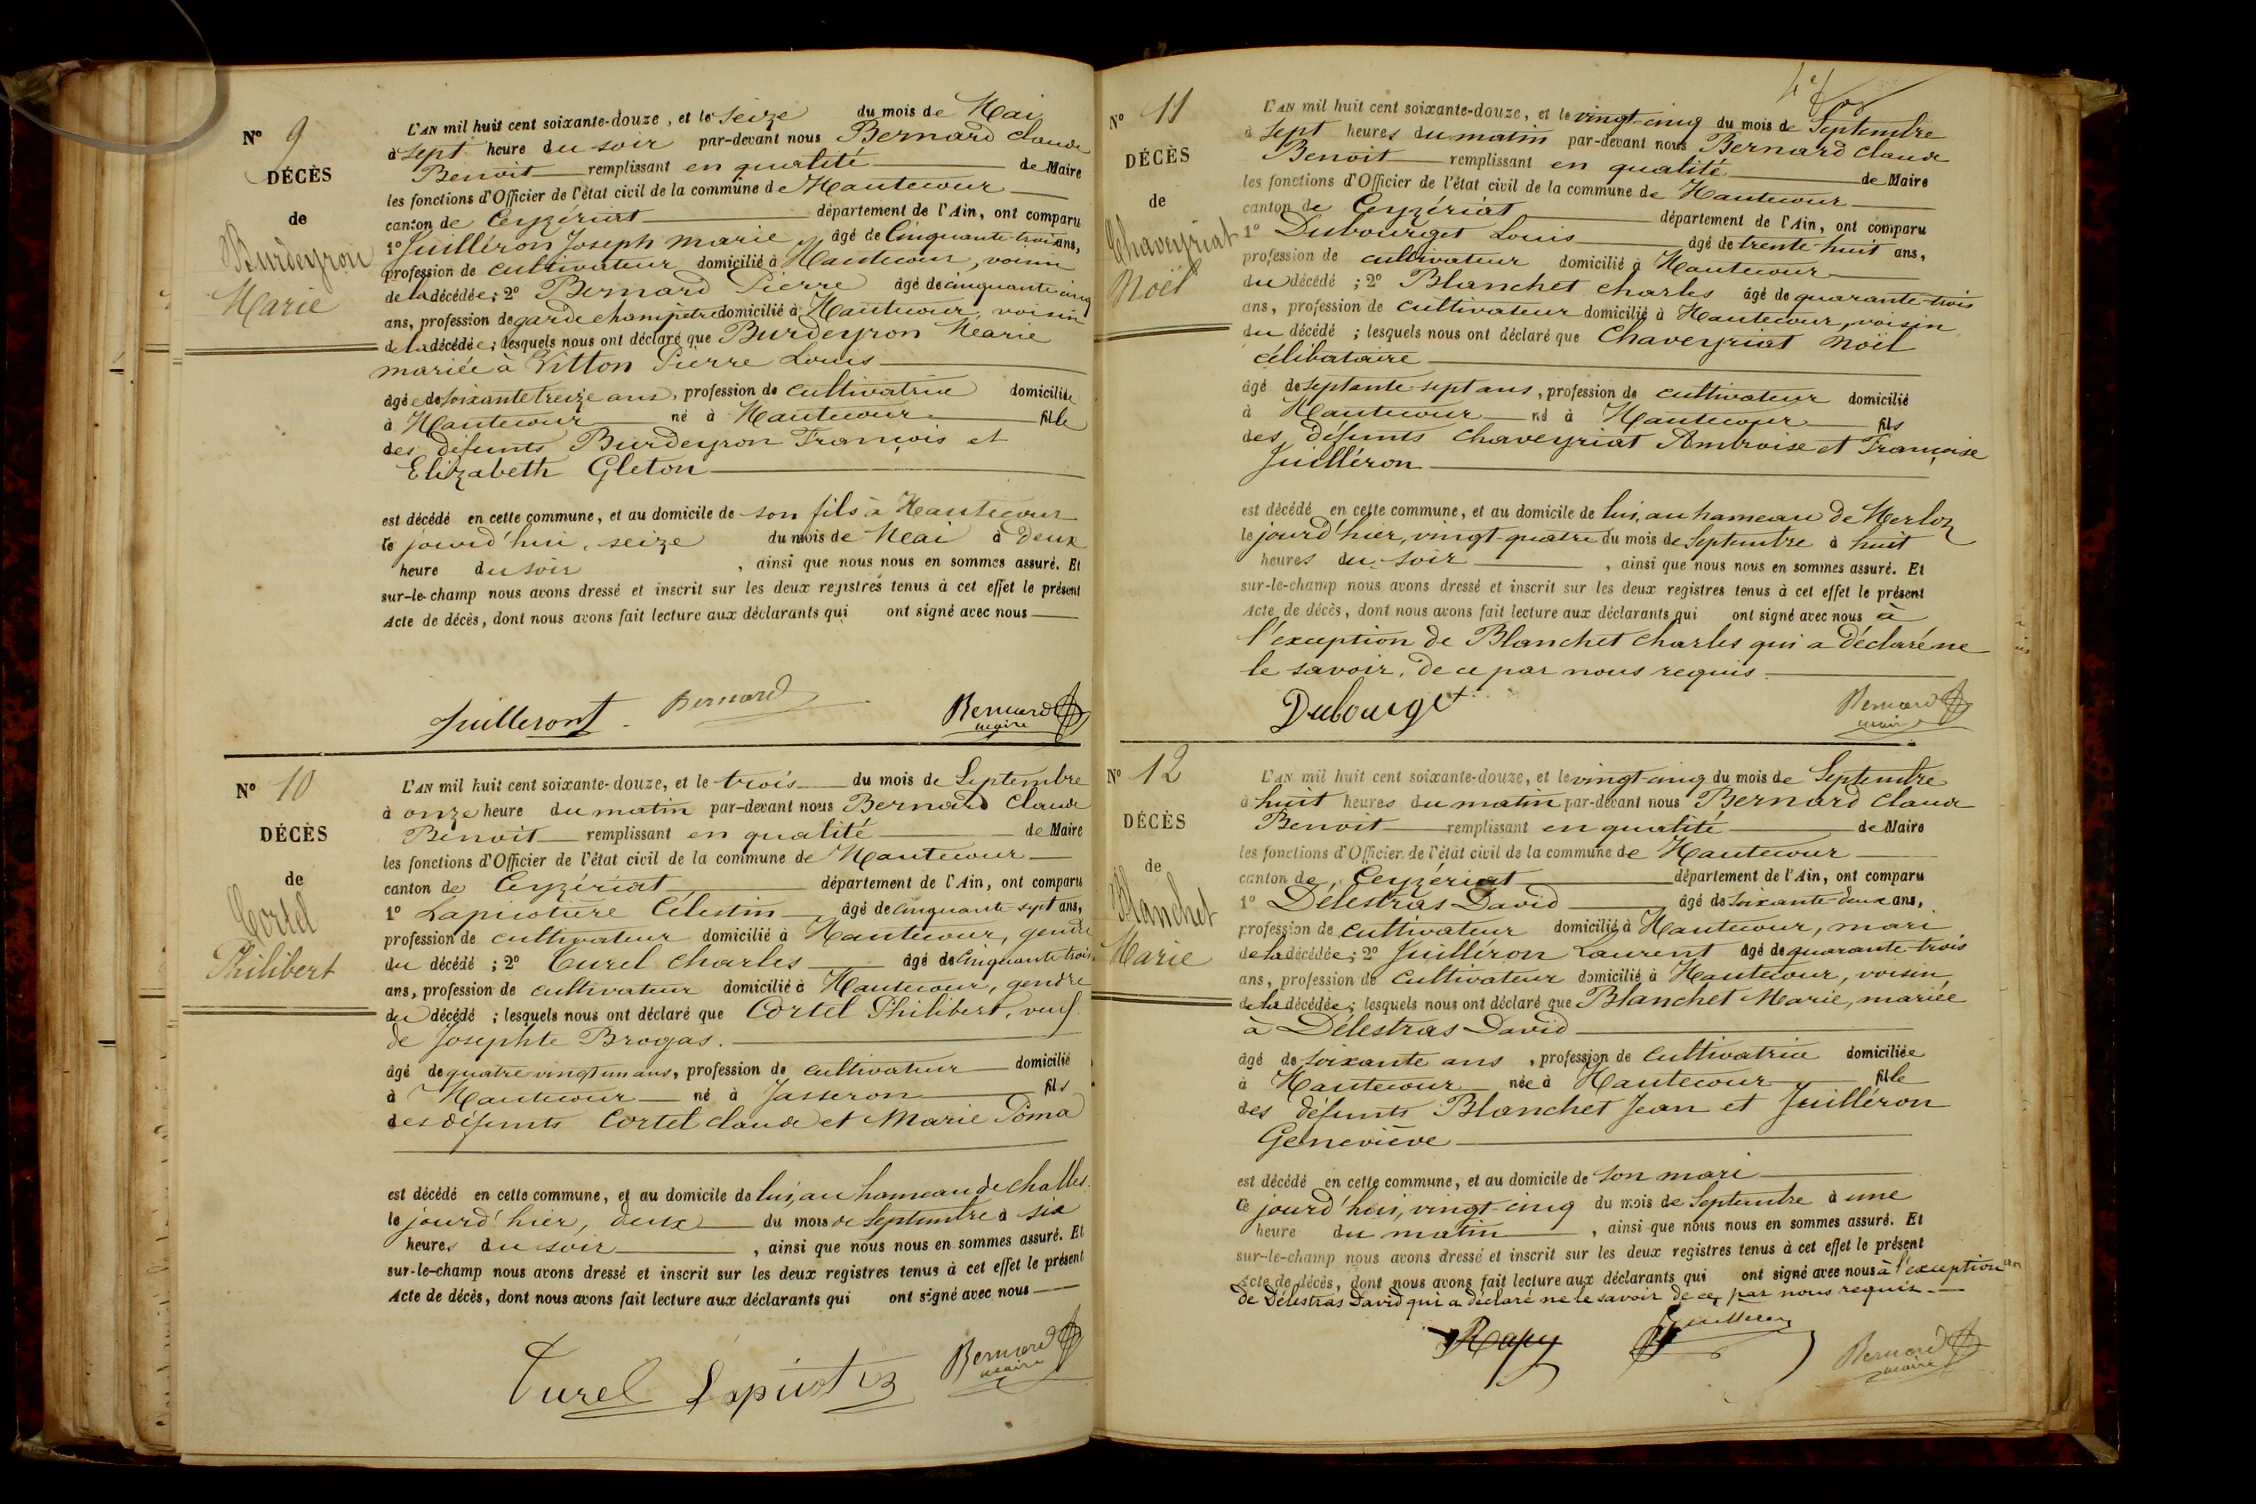 N° 9
DÉCÈS
de
Burdeyron
Marie
L'AN mil huit cent soixante-douze, et le seize du mois de Mai
à sept heure du soir par-devant nous Bernard Claude
Benoit remplissant en qualité de Maire
les fonctions d'Officier de l'état civil de la commune de Hautecour
canton de Ceyzériat département de l'Ain, ont comparu
1° Juilléron Joseph Marie âgé de Cinquante-trois ans,
profession de cultivateur domicilié à Hautecour, voisin
de la décédée; 2° Bernard Pierre âgé de cinquante cinq
ans, profession de garde champêtre domicilié à Hautecour, voisin
de la décédée; lesquels nous ont déclaré que Burdeyron Marie
mariée à Vitton Pierre Louis
âgée de soixante treize ans, profession de cultivatrice domiciliée
à Hautecour né à Hautecour fille
des défunts Burdeyron François et
Elizabeth Gleton
est décédé en cette commune, et au domicile de son fils à Hautecour
le jourd'hui, seize du mois de Mai à deux
heure du soir, ainsi que nous nous en sommes assuré. Et
sur-le-champ nous avons dressé et inscrit sur les deux registres tenus à cet effet le présent
Acte de décès, dont nous avons fait lecture aux déclarants qui ont signé avec nous
Juilleront Bernard Bernard
maire
N° 10
DÉCÈS
de
Cortel
Philibert
L'AN mil huit cent soixante-douze, et le trois du mois de Septembre
à onze heure du matin par-devant nous Bernard Claude
Benoit remplissant en qualité de Maire
les fonctions d'Officier de l'état civil de la commune de Hautecour
canton de Ceyzériat département de l'Ain, ont comparu
1° Lapicotière Célestin âgé de Cinquante sept ans,
profession de cultivateur domicilié à Hautecour, gendre
du décédé; 2° Curel Charles âgé de Cinquante-trois
ans, profession de cultivateur domicilié à Hautecour, gendre
du décédé; lesquels nous ont déclaré que Cortel Philibert, veuf
de Josephte Brogas.
âgé de quatre vingt un ans, profession de cultivateur domicilié
à Hautecour né à Jasseron fils
des défunts Cortel Claude et Marie Poma
est décédé en cette commune, et au domicile de lui, au hameau de Challes.
le jourd'hier, deux du mois de Septembre à six
heures du soir, ainsi que nous nous en sommes assuré. Et
sur-le-champ nous avons dressé et inscrit sur les deux registres tenus à cet effet le présent
Acte de décès, dont nous avons fait lecture aux déclarants qui ont signé avec nous
Curel Bernard
maire
N° 11
DÉCÈS
de
Chaveyriat
Noël
L'AN mil huit cent soixante-douze, et le vingt-cinq du mois de Septembre
à sept heures du matin par-devant nous Bernard Claude
Benoit remplissant en qualité de Maire
les fonctions d'Officier de l'état civil de la commune de Hautecour
canton de Ceyzériat département de l'Ain, ont comparu
1° Dubourget Louis âgé de trente-huit ans,
profession de cultivateur domicilié à Hautecour
du décédé; 2° Blanchet Charles âgé de quarante-trois
ans, profession de cultivateur domicilié à Hautecour, voisin
du décédé; lesquels nous ont déclaré que Chaveyriat Noël
célibataire
âgé de septante-sept ans, profession de cultivateur domicilié
à Hautecour né à Hautecour fils
des défunts Chaveyriat Ambroise et Françoise
Juilléron
est décédé en cette commune, et au domicile de lui, au hameau de Merloz
le jourd'hier, vingt-quatre du mois de Septembre à huit
heures du soir, ainsi que nous nous en sommes assuré. Et
sur-le-champ nous avons dressé et inscrit sur les deux registres tenus à cet effet le présent
Acte de décès, dont nous avons fait lecture aux déclarants qui ont signé avec nous à
l'exception de Blanchet Charles qui a déclaré ne
le savoir, de ce par nous requis.
Dubourget Bernard
maire
N° 12
DÉCÈS
de
Blanchet
Marie
L'AN mil huit cent soixante-douze, et le vingt-cinq du mois de Septembre
à huit heures du matin par-devant nous Bernard Claude
Benoit remplissant en qualité de Maire
les fonctions d'Officier de l'état civil de la commune de Hautecour
canton de Ceyzériat département de l'Ain, ont comparu
1° Délestras David âgé de soixante-deux ans,
profession de cultivateur domicilié à Hautecour, mari
de la décédée; 2° Juilléron Laurent âgé de quarante-trois
ans, profession de cultivateur domicilié à Hautecour, voisin
de la décédée; lesquels nous ont déclaré que Blanchet Marie, mariée
à Délestras David
âgé de soixante ans, profession de cultivatrice domiciliée
à Hautecour née à Hautecour fille
des défunts Blanchet Jean et Juilléron
Geneviève
est décédé en cette commune, et au domicile de son mari
le jourd'hui, vingt-cinq du mois de Septembre à une
heure du matin, ainsi que nous nous en sommes assuré. Et
sur-le-champ nous avons dressé et inscrit sur les deux registres tenus à cet effet le présent
Acte de décès, dont nous avons fait lecture aux déclarants qui ont signé avec nous à l'exception
de Délestras David qui a déclaré ne le savoir de ce, par nous requis.
Bernard
maire